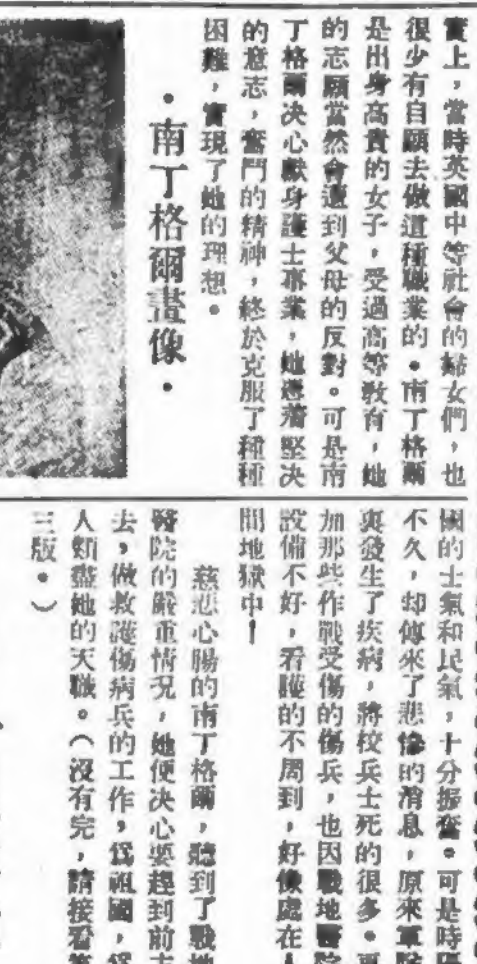 實上，當時英國中等社會的婦女們，也
很少有自願去做這種職業的。南丁格爾
是出身高貴的女子，受過高等教育，她
的志願當然會遭到父母的反對。可是南
丁格爾决心獻身護士事業，她憑着堅决
的意志，奮鬥的精神，終於克服了種種
困難，實現了她的理想。
•南丁格爾畫像•
國的士氣和民氣，十分振奮。可是時隔
不久，却傳來了悲慘的消息，原來軍隊
裏發生了疾病，將校兵士死的很多。再
加那些作戰受傷的傷兵，也因戰地醫院
設備不好，看護的不周到，好像處在人
間地獄中！
慈悲心腸的南丁格爾，聽到了戰地
醫院的嚴重情况，她便决心要趕到前方
去，做救護傷病兵的工作，爲祖國，爲
人類盡她的天職。（沒有完，請接看第
三版。）